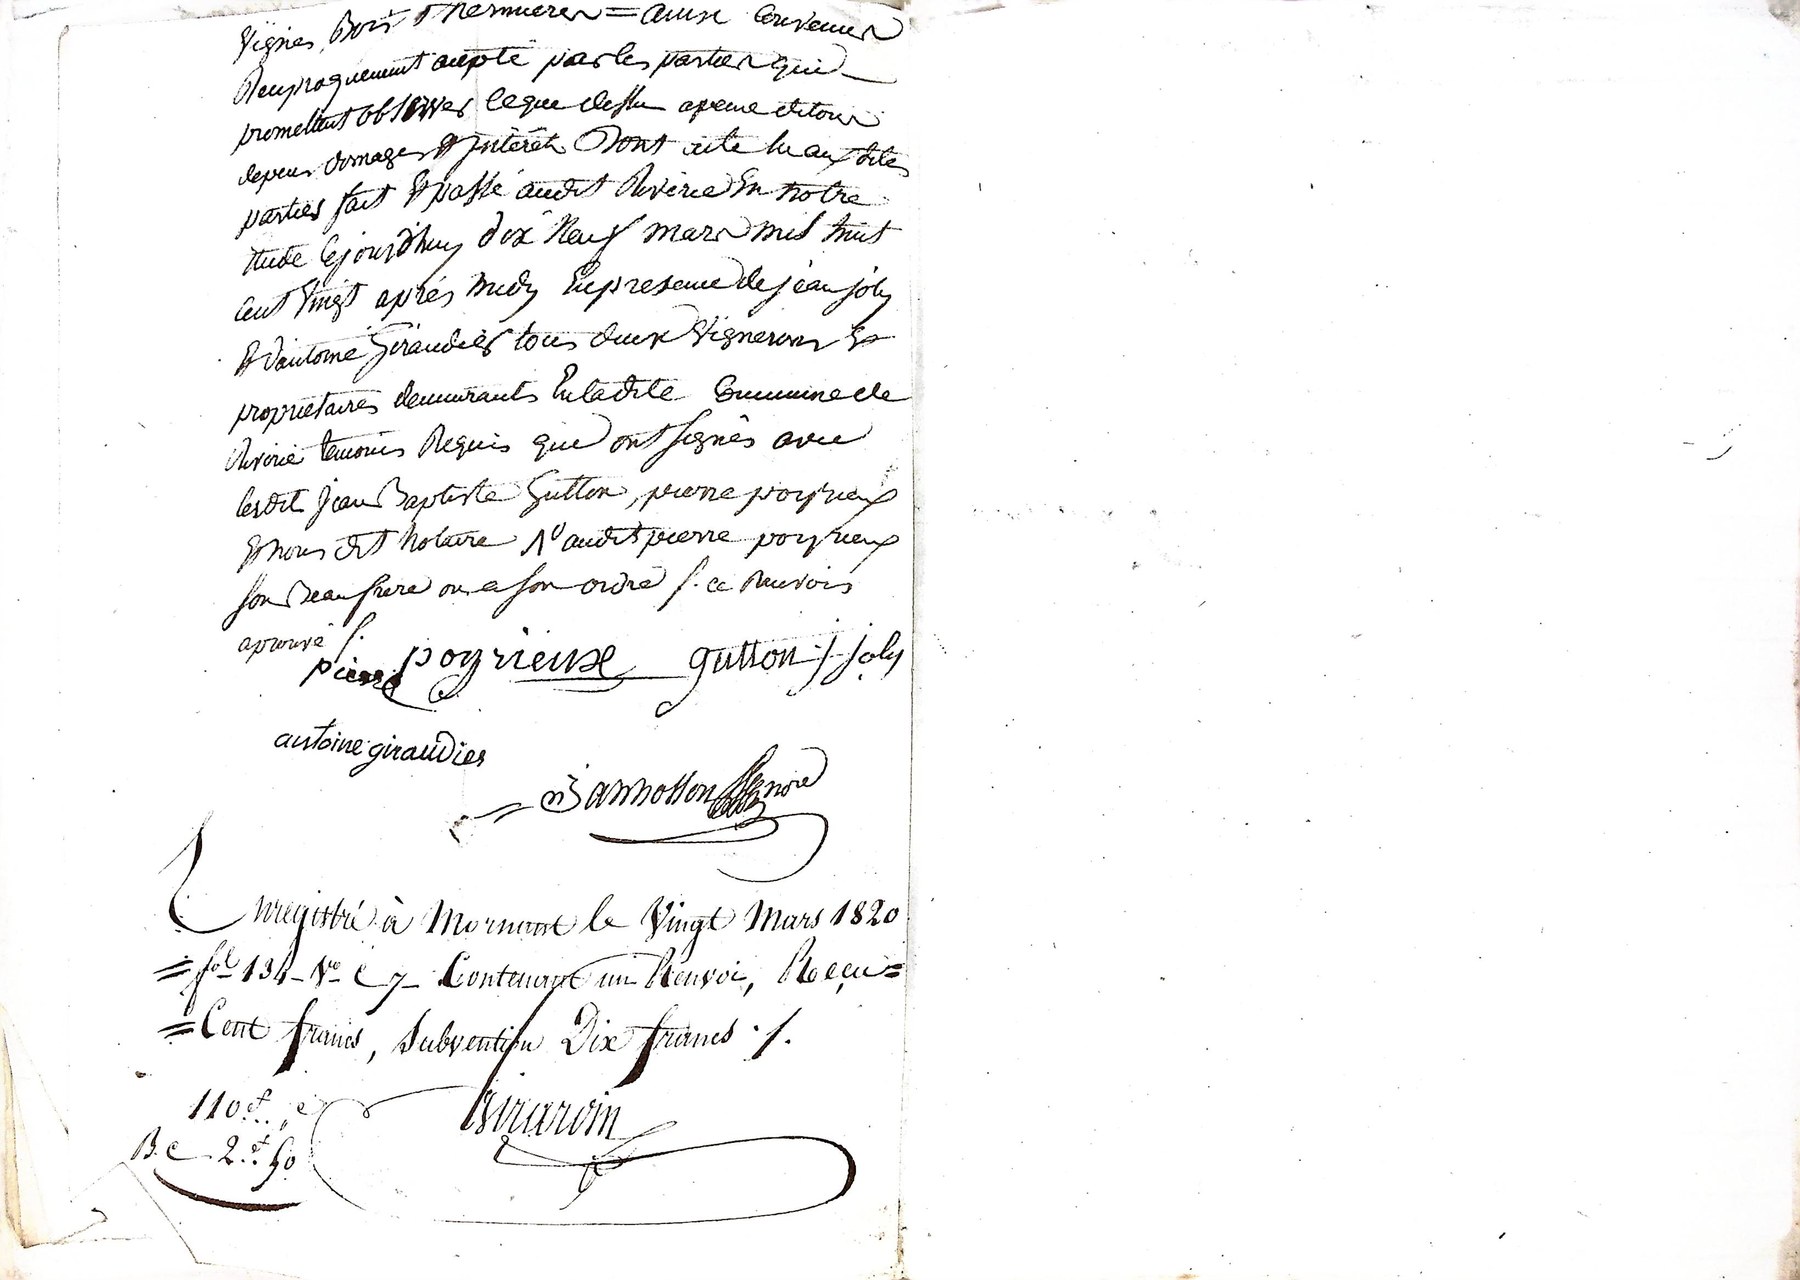 Vignes, Bois & hermieres = ainsi Convenu
Reciproquement accepté par les parties qui
promettent observer ceque dessus apeine detous
depens domages & jnterêts Dont acte lu aux dites
parties fait & passé audit Riverie En notre
étude Cejourdhuy dix Neuf mars mil huit
cent Vingt après midy En presence de jean joly
& d'antoine Giraudier tous deux Vignerons &
proprietaires demeurants En ladite Commune de
Riverie temoins Requis qui ont signés avec
lesdit Jean Baptiste Gutton, pierre poyrieux
& nous dit Notaire 1° audit pierre poyrieux
son Beaufrere ou a son ordre /. ce Renvois
aprouvé /.
pierre poyrieuxe gutton j joly
antoine giraudier
nore
Enregistré à Mornant le Vingt Mars 1820
= fol 134 Vo C 7 Contenant un Renvoi, Reçu =
= Cent francs, Subvention Dix francs ./.
110f. ,, c
B. c 2.f 50
Girardin